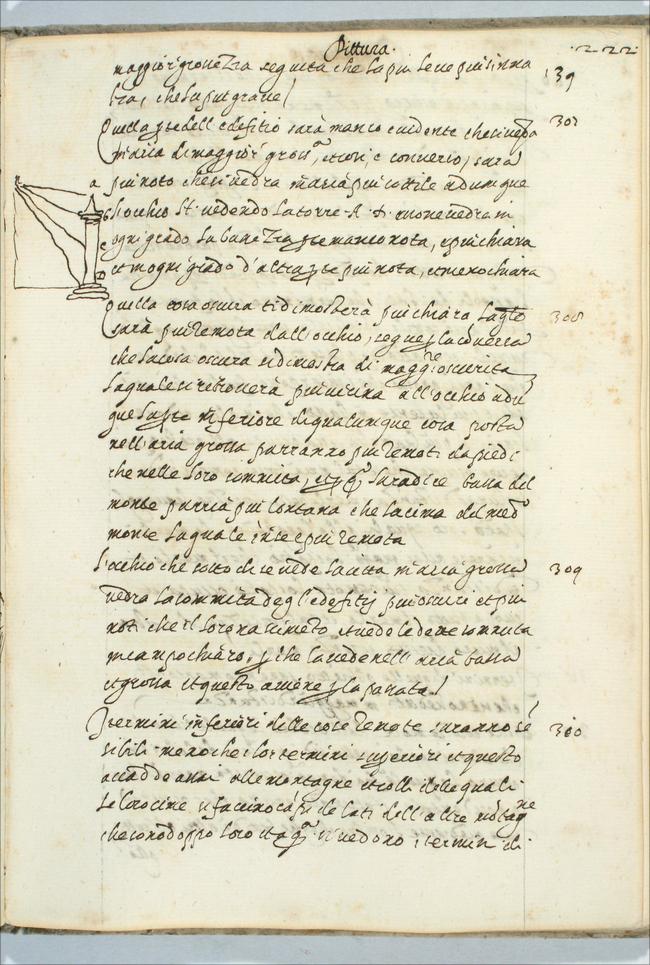 Pittura.
.222.
maggior' grossezza seguita che la più leve più s'innal
139
tia, che la più grave /
Quella pte dell'edifitio sarà manco evidente che si vedrà
307
in aria di maggior' gross.a, et così e converso, sarà
a più noto che si vedrà in aria più sottile adunque
l'occhio
vedendo la torre A
ne vedrà in
ogni grado la bassezza pte manco nota, e più chiara
et in ogni grado d'altezza pte più nota, et meno chiara
Quella cosa oscura si dimosterà più chiara la qle
308
sarà più remota dall'occhio, segue p la conversa
che la cosa oscura si dimostra di magg.re oscurità
la quale si ritroverà più vicina all'occhio adun
que le pte inferiore di qualunque cosa posta
nell'aria grossa parranno più remoti da piedi
che nelle loro sommità, et p q.o la radice bassa del
monte parrà più lontana che la cima del med.o
monte la quale in se è più remota
L'occhio che sotto di se vede la citta in aria grossa
309
vedra la sommità degl'edefitij più oscuri et più
noti che il loro nascimeto, et vede le dette sommita
in campo chiaro, p che la vede nell'aria bassa
et grossa et questo aviene p la passata./
I termini inferiori delle cose remote saranno sé
310
sibili meno che i lor termini superiori et questo
accadde assai alle montagne et colli delle quali
le loro cime si faccino càpi de lati dell'altre mòtagne
che sono doppo loro et a q.o si vedono i termini di